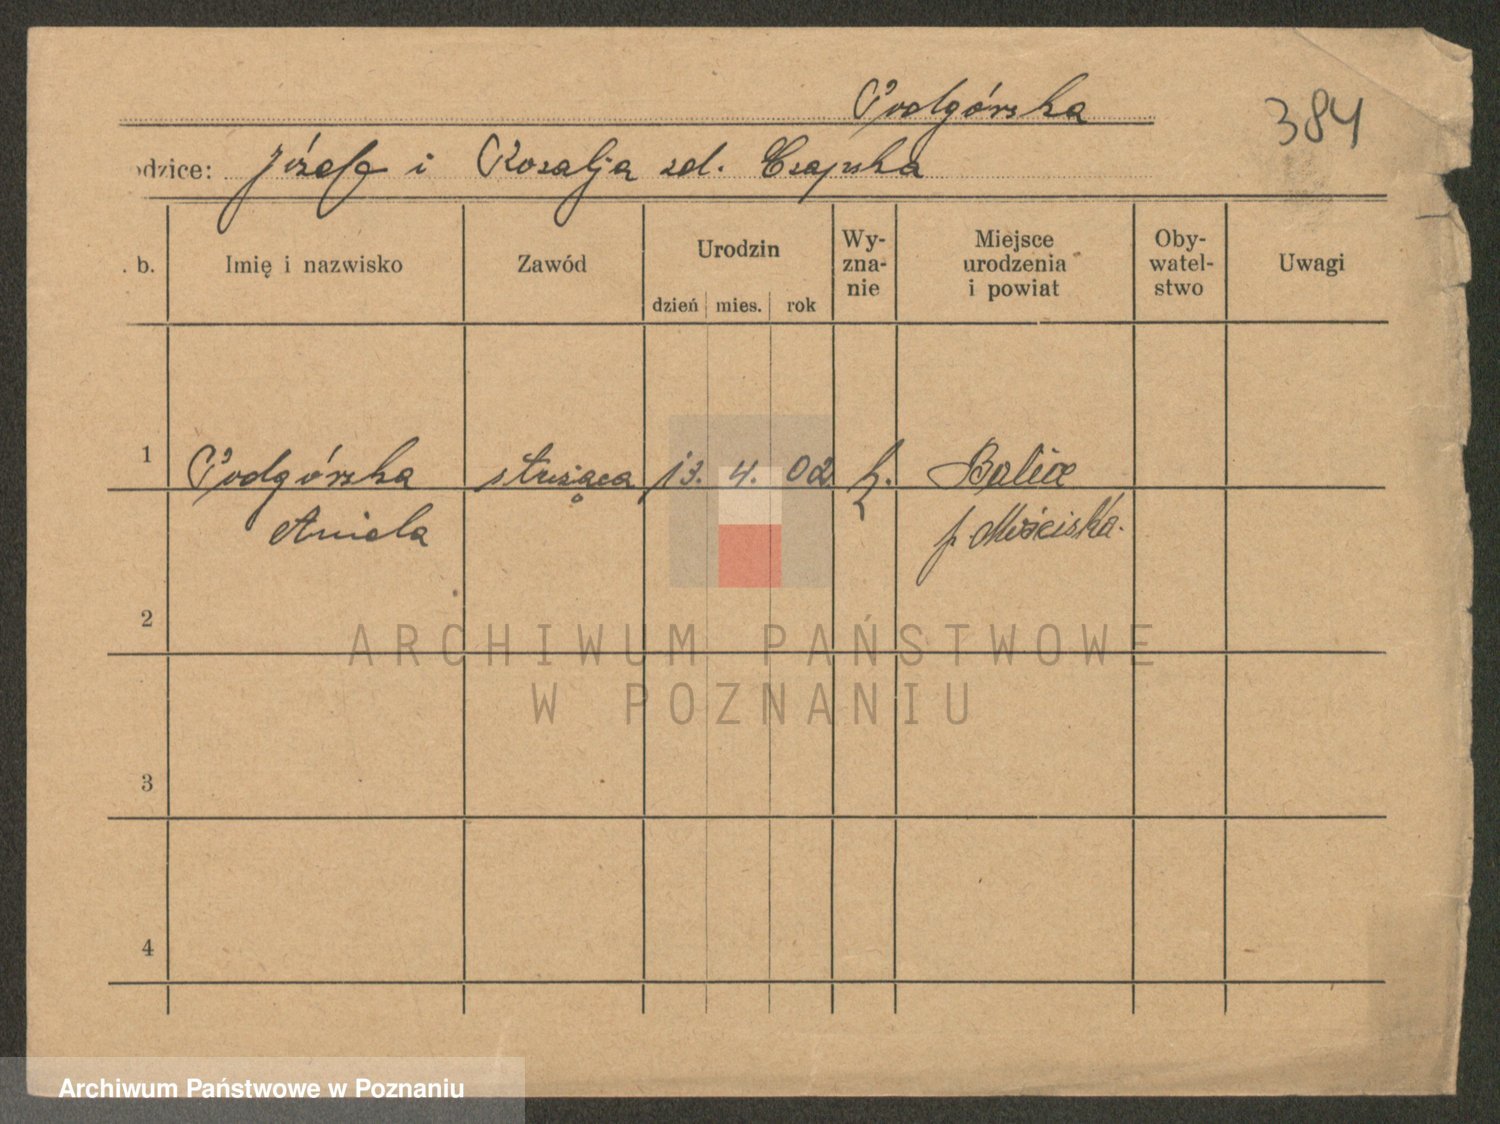 Podgórska
384
odzice: Józefa i Rozalja zd. Czapska
. b.
Imię i nazwisko
Zawód
Urodzin
dzień mies. rok
Wy-
zna-
nie
Miejsce
urodzenia
i powiat
Oby-
watel-
stwo
Uwagi
1 Podgórska służąca 13. 4. 02 k. Balice
Aniela p. Mościska.
2
3
4
ARCHIWUM PAŃSTWOWE
W POZNANIU
Archiwum Państwowe w Poznaniu